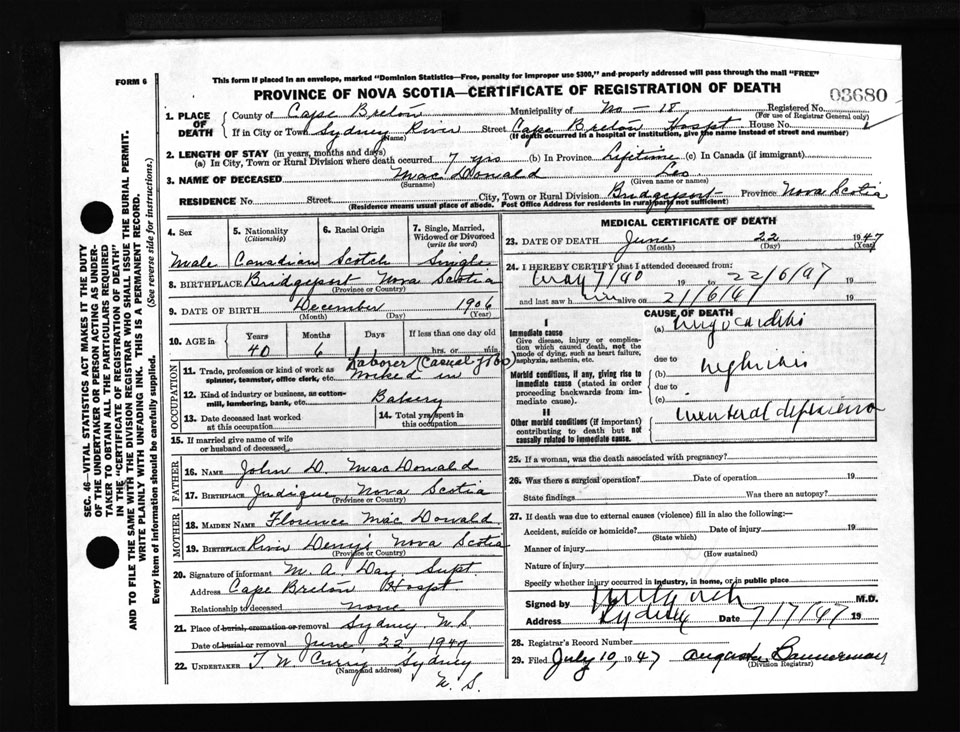 FORM 6
This form if placed in an envelope, marked "Dominion Statistics—Free, penalty for improper use $300," and properly addressed will pass through the mail "FREE"
PROVINCE OF NOVA SCOTIA—CERTIFICATE OF REGISTRATION OF DEATH
03680
1. PLACE OF DEATH
County of Cape Breton Municipality of No - 18 Registered No.
(For use of Registrar General only)
If in City or Town Sydney River Street Cape Breton Hospt House No.
(Name) (If death occurred in a hospital or institution, give the name instead of street and number)
2. LENGTH OF STAY (in years, months and days)
(a) In City, Town or Rural Division where death occurred 7 yrs (b) In Province Lifetime (c) In Canada (if immigrant)
3. NAME OF DECEASED MacDonald Leo
(Surname) (Given name or names)
RESIDENCE No. Street City, Town or Rural Division Bridgeport Province Nova Scotia
(Residence means usual place of abode. Post Office Address for residents in rural parts not sufficient)
4. Sex
5. Nationality (Citizenship)
6. Racial Origin
7. Single, Married, Widowed or Divorced (write the word)
Male Canadian Scotch Single
8. BIRTHPLACE Bridgeport Nova Scotia
(Province or Country)
9. DATE OF BIRTH December 1906
(Month) (Day) (Year)
10. AGE in Years Months Days If less than one day old
40 6 hrs. or min.
OCCUPATION
11. Trade, profession or kind of work as spinner, teamster, office clerk, etc. Laborer (Casual jobs)
worked in
12. Kind of industry or business, as cotton-mill, lumbering, bank, etc. Bakery
13. Date deceased last worked at this occupation
14. Total yrs. spent in this occupation
15. If married give name of wife or husband of deceased
FATHER
16. NAME John D. MacDonald
17. BIRTHPLACE Judique Nova Scotia
(Province or Country)
MOTHER
18. MAIDEN NAME Florence MacDonald
19. BIRTHPLACE River Denys Nova Scotia
(Province or Country)
20. Signature of informant M. A. Day. Supt.
Address Cape Breton Hospt.
Relationship to deceased none
21. Place of burial, cremation or removal Sydney N.S.
Date of burial or removal June 22 1947
22. UNDERTAKER T. W. Curry Sydney
(Name and address)
N. S.
MEDICAL CERTIFICATE OF DEATH
23. DATE OF DEATH June 22 1947
(Month) (Day) (Year)
24. I HEREBY CERTIFY that I attended deceased from:
May 7/40 19 to 22/6/47 19
and last saw him alive on 21/6/47 19
CAUSE OF DEATH
I
Immediate cause
Give disease, injury or complication which caused death, not the mode of dying, such as heart failure, asphyxia, asthenia, etc.
(a) myocarditis
due to
Morbid conditions, if any, giving rise to immediate cause (stated in order proceeding backwards from immediate cause).
(b) nephritis
due to
(c)
II
Other morbid conditions (if important) contributing to death but not causally related to immediate cause.
mental
25. If a woman, was the death associated with pregnancy?
26. Was there a surgical operation? Date of operation 19
State findings Was there an autopsy?
27. If death was due to external causes (violence) fill in also the following:—
Accident, suicide or homicide? Date of injury 19
(State which)
Manner of injury
(How sustained)
Nature of injury
Specify whether injury occurred in industry, in home, or in public place
Signed by M.D.
Address Sydney Date 7/7/47 19
28. Registrar's Record Number
29. Filed July 10, 1947 Bannerman
(Division Registrar)
SEC. 46—VITAL STATISTICS ACT MAKES IT THE DUTY
OF THE UNDERTAKER OR PERSON ACTING AS UNDER-
TAKER TO OBTAIN ALL THE PARTICULARS REQUIRED
IN THE "CERTIFICATE OF REGISTRATION OF DEATH"
AND TO FILE THE SAME WITH THE DIVISION REGISTRAR WHO SHALL ISSUE THE BURIAL PERMIT.
WRITE PLAINLY WITH UNFADING INK. THIS IS A PERMANENT RECORD.
Every item of information should be carefully supplied. (See reverse side for instructions.)